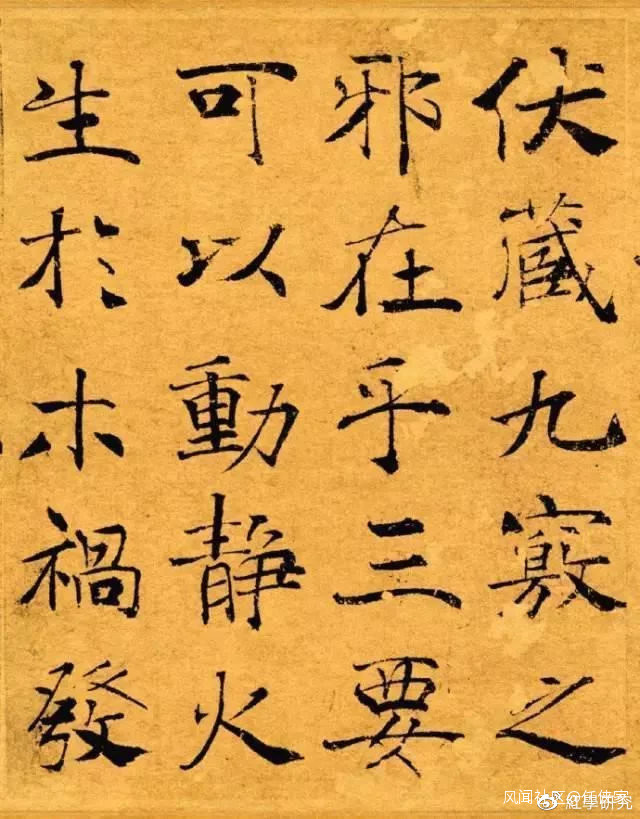 伏藏九竅之
邪在乎三要
可以動靜火
生於木禍發
风闻社区@任伟家
@红学研究